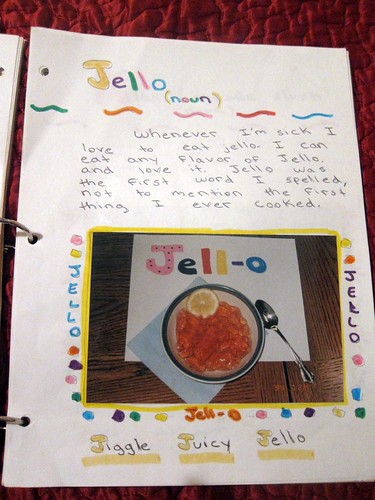 Jello
(noun)
Whenever I'm sick I
love to eat jello. I can
eat any flavor of Jello.
and love it. Jello was
the first word I spelled,
not to mention the first
thing I ever cooked.
Jell-o
JELLO
JELLO
Jell-O
Jiggle Juicy Jello